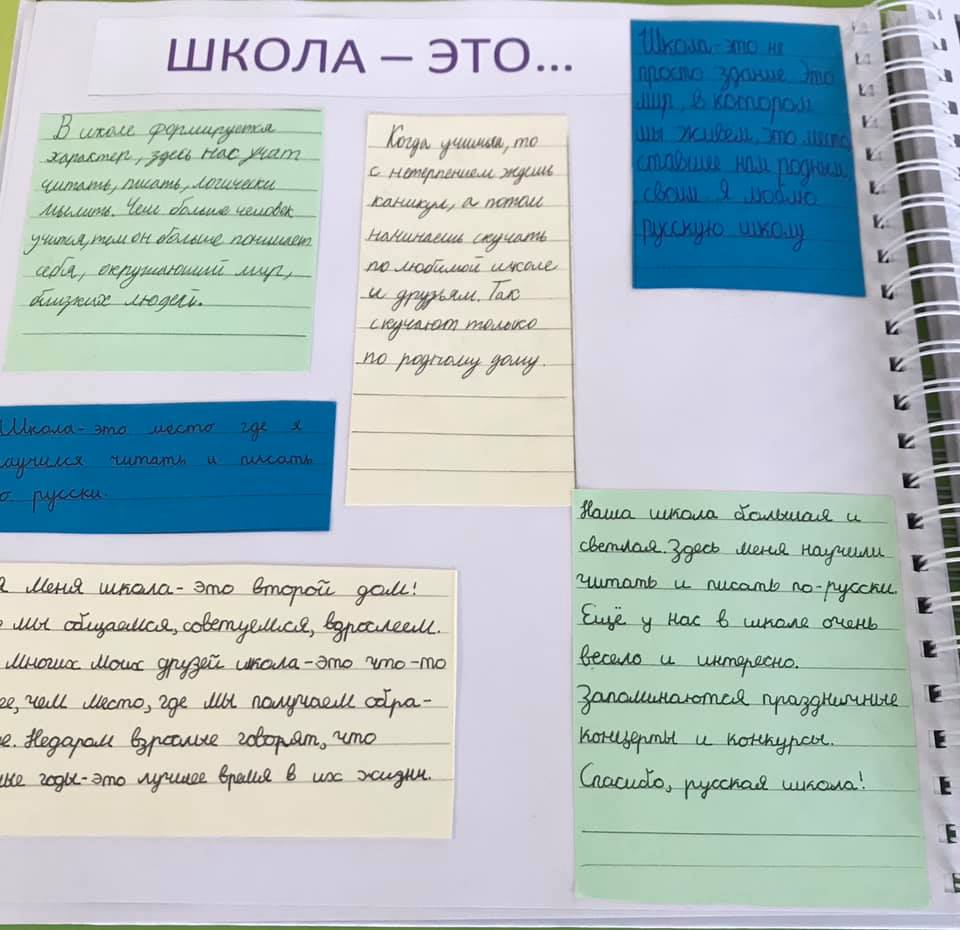 ШКОЛА – ЭТО...
В школе формируется
характер, здесь нас учат
читать, писать, логически
мыслить. Чем больше человек
учится, тем он больше понимает
себя, окружающий мир,
близких людей.
Когда учишься, то
с нетерпением ждешь
каникул, а потом
начинаешь скучать
по любимой школе
и друзьям. Так
скучают только
по родному дому.
Школа-это не
просто здание это
мир, в котором
мы живем, это место
ставшее нам родным,
своим Я люблю
русскую школу
Школа-это место где я
научился читать и писать
по русски.
я меня школа-это второй дом!
мы общаемся, советуемся, взрослеем.
многих моих друзей школа-это что-то
ее, чем место, где мы получаем обра-
е. Недаром взрослые говорят, что
ные годы-это лучшее время в их жизни.
Наша школа большая и
светлая. Здесь меня научили
читать и писать по-русски.
Ещё у нас в школе очень
весело и интересно.
Запоминаются праздничные
концерты и конкурсы.
Спасибо, русская школа!